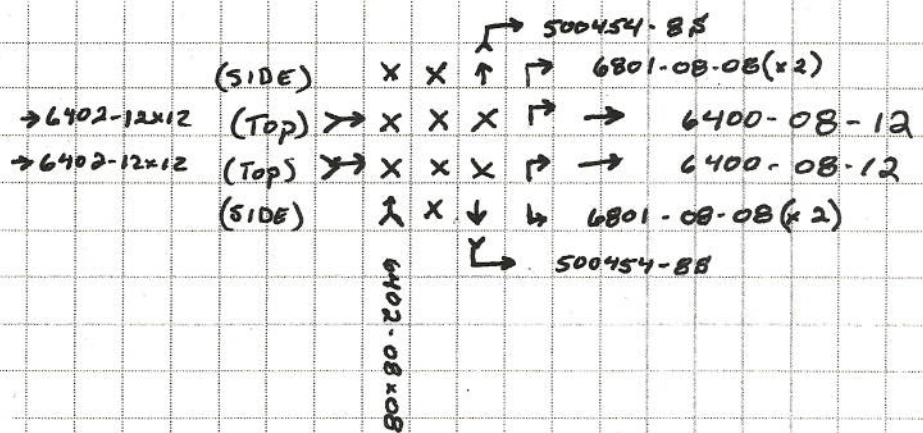 500454-8S
(SIDE) X X ↑ ↱ 6801-08-08(x2)
→6402-12x12 (TOP) >→ X X X ↱ → 6400-08-12
→6402-12x12 (TOP) >→ X X X ↱ → 6400-08-12
(SIDE) X ↓ ↳ 6801-08-08(x2)
500454-8S
6402-08x08